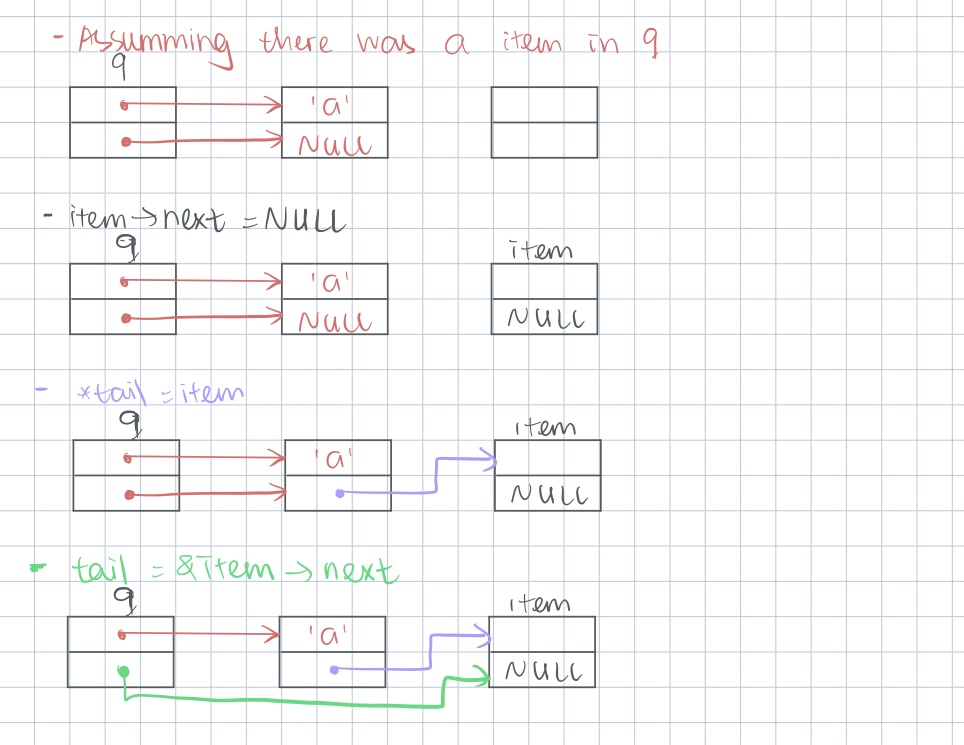 - Assumming there was a item in q
q
'a'
NULL
- item→next = NULL
q item
'a'
NULL NULL
- *tail = item
q item
'a'
NULL
- tail = &item→next
q item
'a'
NULL